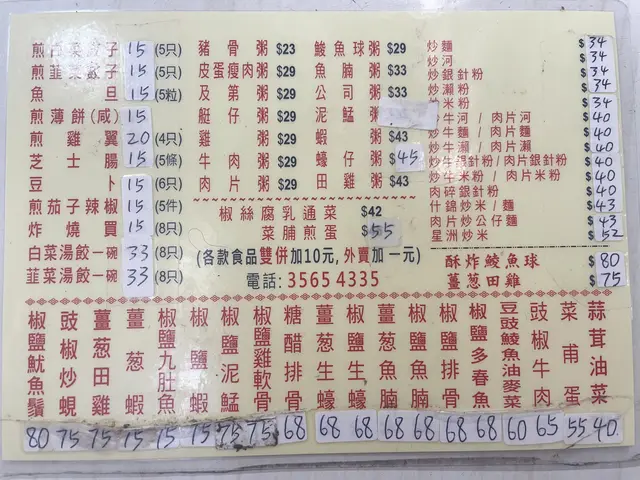 煎白菜餃子 15 (5只)
煎韮菜餃子 15 (5只)
魚旦 15 (5粒)
煎薄餅(咸) 15
煎雞翼 20 (4只)
芝士腸 15 (5條)
豆卜 15 (6只)
煎茄子辣椒 15 (5件)
炸燒買 15 (8只)
白菜湯餃一碗 33 (8只)
韮菜湯餃一碗 33 (8只)
豬骨粥 $23
皮蛋瘦肉粥 $29
及第粥 $29
艇仔粥 $29
雞粥 $29
牛肉粥 $29
肉片粥 $29
鯪魚球粥 $29
魚腩粥 $33
公司粥 $33
泥鯭粥
蝦粥 $43
蠔仔粥 $45
田雞粥 $43
椒絲腐乳通菜 $42
菜脯煎蛋 $55
(各款食品雙併加10元, 外賣加一元)
電話: 3565 4335
炒麵 $34
炒河 $34
炒銀針粉 $34
炒瀨粉 $34
炒米粉 $34
炒牛河 / 肉片河 $40
炒牛麵 / 肉片麵 $40
炒牛瀨 / 肉片瀨 $40
炒牛銀針粉/肉片銀針粉 $40
炒牛米粉 / 肉片米粉 $40
肉碎銀針粉 $40
什錦炒米 / 麵 $43
肉片炒公仔麵 $43
星洲炒米 $52
酥炸鯪魚球 $80
薑葱田雞 $75
椒鹽魷魚鬚 80
豉椒炒蜆 75
薑葱田雞 75
薑葱蝦 75
椒鹽九肚魚 75
椒鹽蝦 75
椒鹽泥鯭 75
椒鹽雞軟骨 75
糖醋排骨 68
薑葱生蠔 68
椒鹽生蠔 68
薑葱魚腩 68
椒鹽魚腩 68
椒鹽排骨 68
椒鹽多春魚 68
豆豉鯪魚油麥菜 60
豉椒牛肉 65
菜甫蛋 55
蒜茸油菜 40